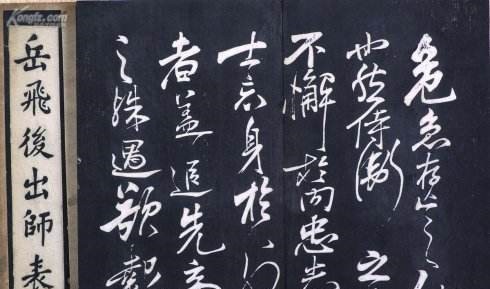 Kongfz.com
危急存亡之
也然侍衛之
不懈於内忠志
士忘身於外
者盖追先帝
之殊遇欲報
岳飛後出師表